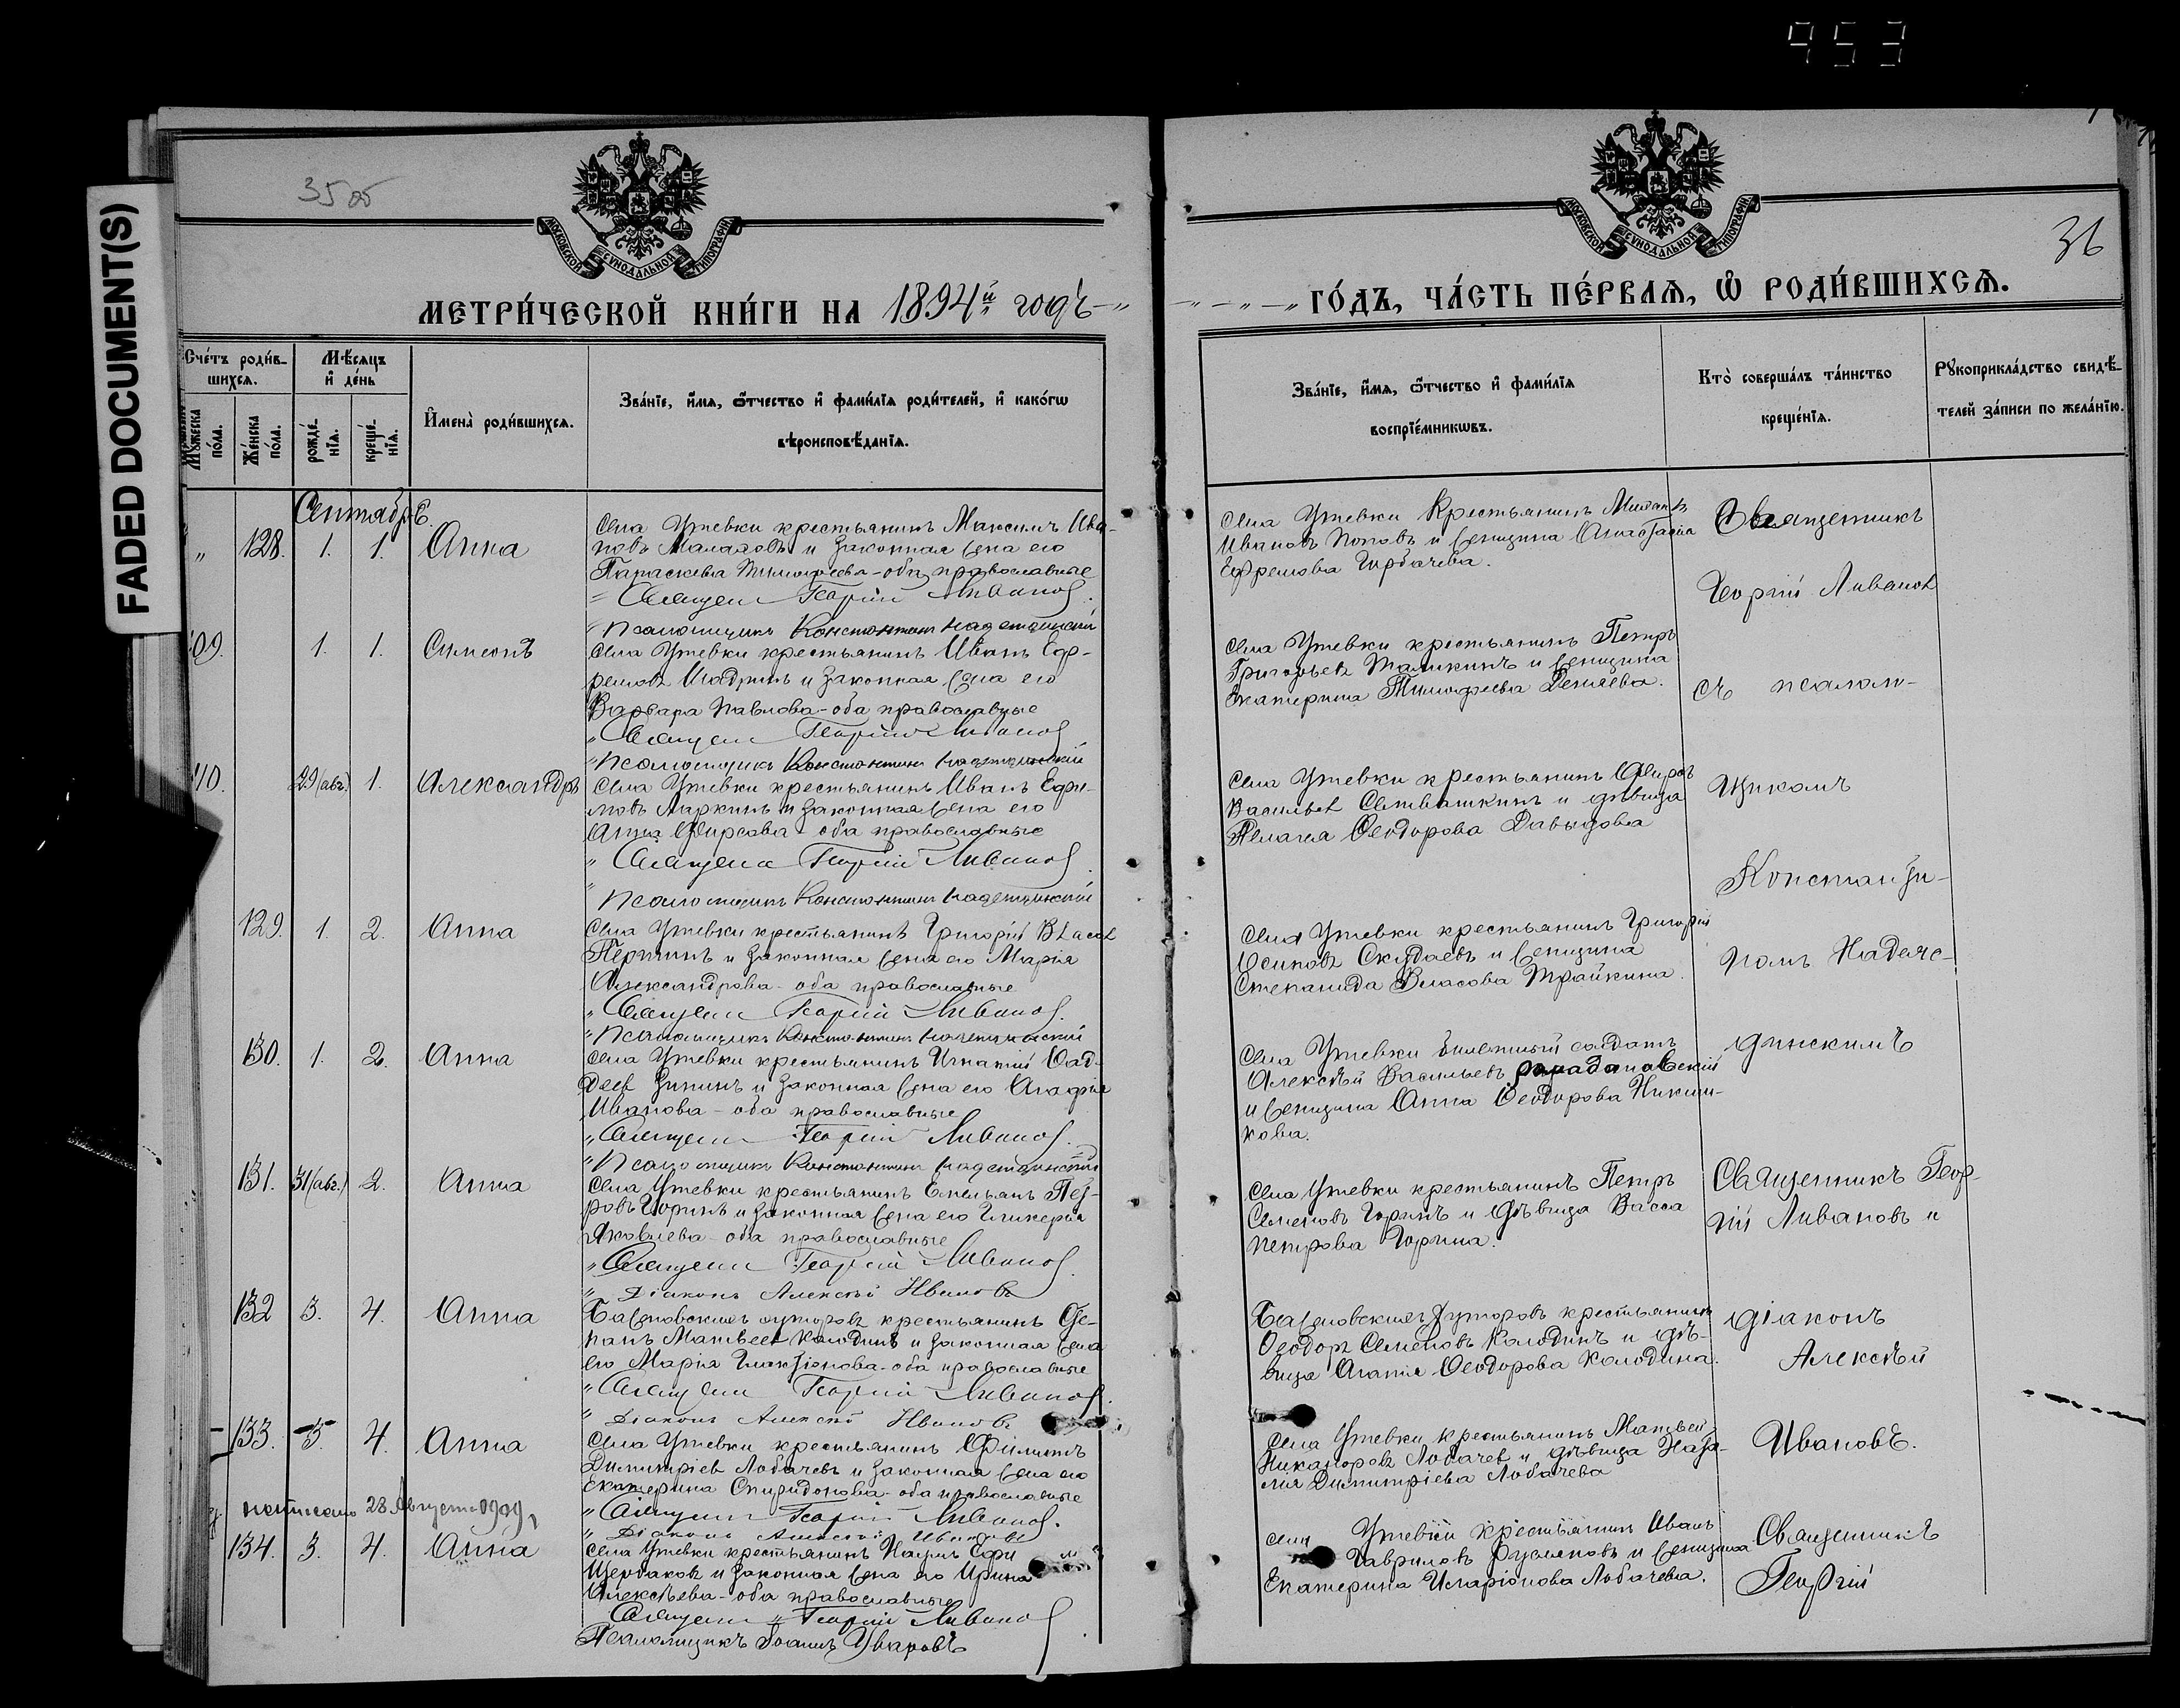 953
FADED DOCUMENT(S)
35 об
36
МОСКОВСКОЙ СѴНОДАЛЬНОЙ ТИПОГРАФІИ
МОСКОВСКОЙ СѴНОДАЛЬНОЙ ТИПОГРАФІИ
МЕТРИ́ЧЕСКОЙ КНИ́ГИ НА 1894й годъ
ГО́ДЪ, ЧА́СТЬ ПЕ́РВАЯ, Ѡ РОДИ́ВШИХСЯ.
Сче́тъ роди́в-
шихся.
Мѣ́сяцъ
и де́нь
Мꙋжеска по́ла.
Же́нска по́ла.
рожде́нїя.
креще́нїя.
Имена̀ роди́вшихся.
Зва́нїе, и́мя, ѻ́тчество и фами́лїя роди́телей, и како́гѡ
вѣроисповѣ́данїя.
Зва́нїе, и́мя, ѻ́тчество и фами́лїя
воспрїе́мникѡвъ.
Кто̀ соверша́лъ та́инство
креще́нїя.
Рꙋкоприкла́дство свидѣ́-
телей за́писи по жела́нїю.
Сентябрь.
„ 128. 1. 1. Анна
Села Утевки крестьянинъ Максимъ Ива-
новъ Малаховъ и законная жена его
Параскева Тимофеева - оба православные
Священ Георгій Ливановъ.
Псаломщикъ Константинъ Надеждинскій
Села Утевки Крестьянинъ
Ивановъ Поповъ и женщина Анастасія
Ефремова Горбачева.
Священникъ
Георгій Ливановъ
09. 1. 1. Симеонъ
Села Утевки крестьянинъ Иванъ Еф-
ремовъ Шадринъ и законная жена его
Варвара Павлова - оба православные
„ Священ Георгій Ливановъ
„ Псаломщикъ Константинъ Надеждинскій
Села Утевки крестьянинъ Петръ
Григорьевъ и женщина
Екатерина Тимофеева
съ псалом-
110. 29(авг.) 1. Александръ
Села Утевки крестьянинъ Иванъ Ефи-
мовъ Ларкинъ и законная жена его
Анна Фирсова - оба православные
„ Священ Георгій Ливановъ
„ Псаломщикъ Константинъ Надеждинскій
Села Утевки крестьянинъ Фирсъ
Васильевъ и дѣвица
Пелагея Ѳеодорова Давыдова
щикомъ
Констан­ти-
129. 1. 2. Анна
Села Утевки крестьянинъ Григорій Власовъ
и законная жена его Марія
Александрова - оба православные
„ Священ Георгій Ливановъ.
„ Псаломщикъ Константинъ Надеждинскій
Села Утевки крестьянинъ Григорій
Осиповъ и женщина
Степанида Власова Трайкина.
номъ Надеж-
130. 1. 2. Анна
Села Утевки крестьянинъ Игнатій Ѳад-
деевъ Зининъ и законная жена его Агафья
Иванова - оба православные
„ Священ Георгій Ливановъ.
„ Псаломщикъ Константинъ Надеждинскій
Села Утевки билетный солдатъ
Алексѣй Васильевъ
и женщина Анна Ѳеодорова
кова.
динскимъ
131. 31(авг.) 2. Анна
Села Утевки крестьянинъ Емельянъ Пет-
ровъ Горинъ и законная жена его Гликерія
Яковлева - оба православные
„ Священ Георгій Ливановъ.
„ Діаконъ Алексѣй Ивановъ
Села Утевки крестьянинъ Петръ
Семеновъ Горинъ и дѣвица Васса
Петрова Горина.
Священникъ Геор-
гій Ливановъ и
132 3. 4. Анна
Баженовскихъ хуторовъ крестьянинъ Сте-
панъ Матвеевъ Колодинъ и законная жена
его Марія Галактіонова - оба православные
„ Священ Георгій Ливановъ.
„ Діаконъ Алексѣй Ивановъ
Баженовскихъ Хуторовъ крестьянинъ
Ѳеодоръ Семеновъ Колодинъ и дѣ-
вица Агапія Ѳеодорова Колодина.
діаконъ
Алексѣй
133. 3. 4. Анна
Села Утевки крестьянинъ Филиппъ
Димитріевъ Лобачевъ и законная жена его
Екатерина Спиридонова - оба православные
„ Священ Георгій Ливановъ.
„ Діаконъ Алексѣй Ивановъ
Села Утевки крестьянинъ Матвей
Никаноровъ Лобачевъ и дѣвица Ната-
лія Димитріева Лобачева
Ивановъ.
28 Августа 1909
134. 3. 4. Анна
Села Утевки крестьянинъ Наумъ Ефи
Щербаковъ и законная жена его Ирина
Алексѣева - оба православные
Священ Георгій Ливановъ
Псаломщикъ Іоаннъ Уваровъ
Села Утевки крестьянинъ Иванъ
Гавриловъ и женщина
Екатерина Иларіонова Лобачева.
Священникъ
Георгій